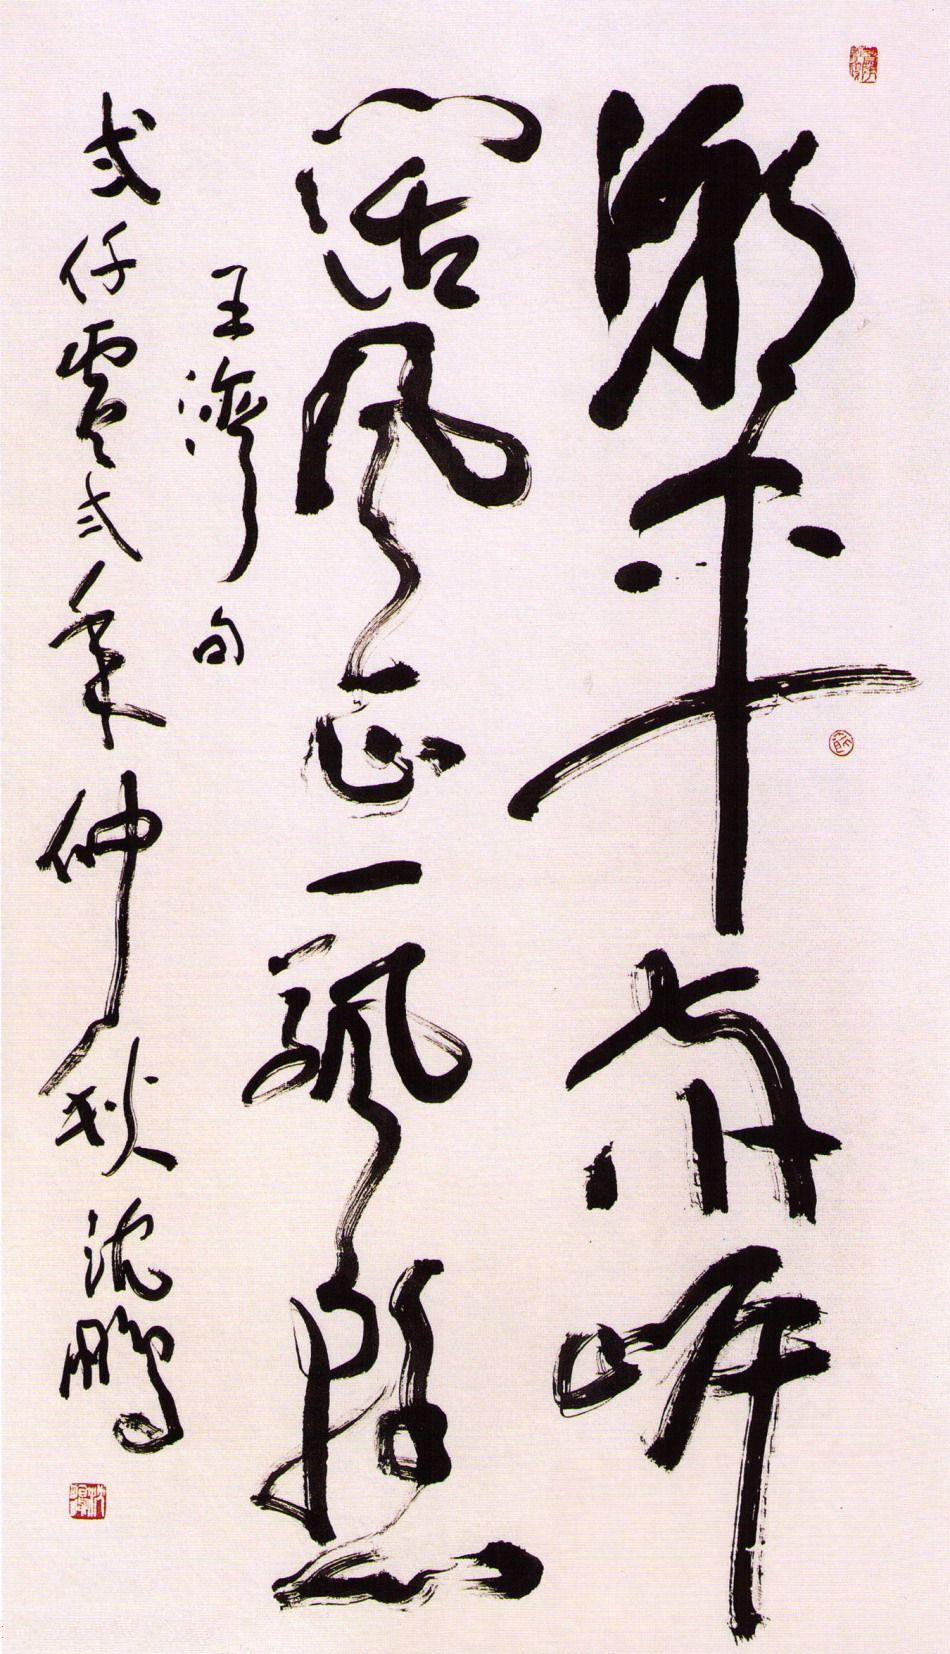 潮平兩岸
闊風正一帆懸
王灣句
弍仟零弍年仲秋沈鵬